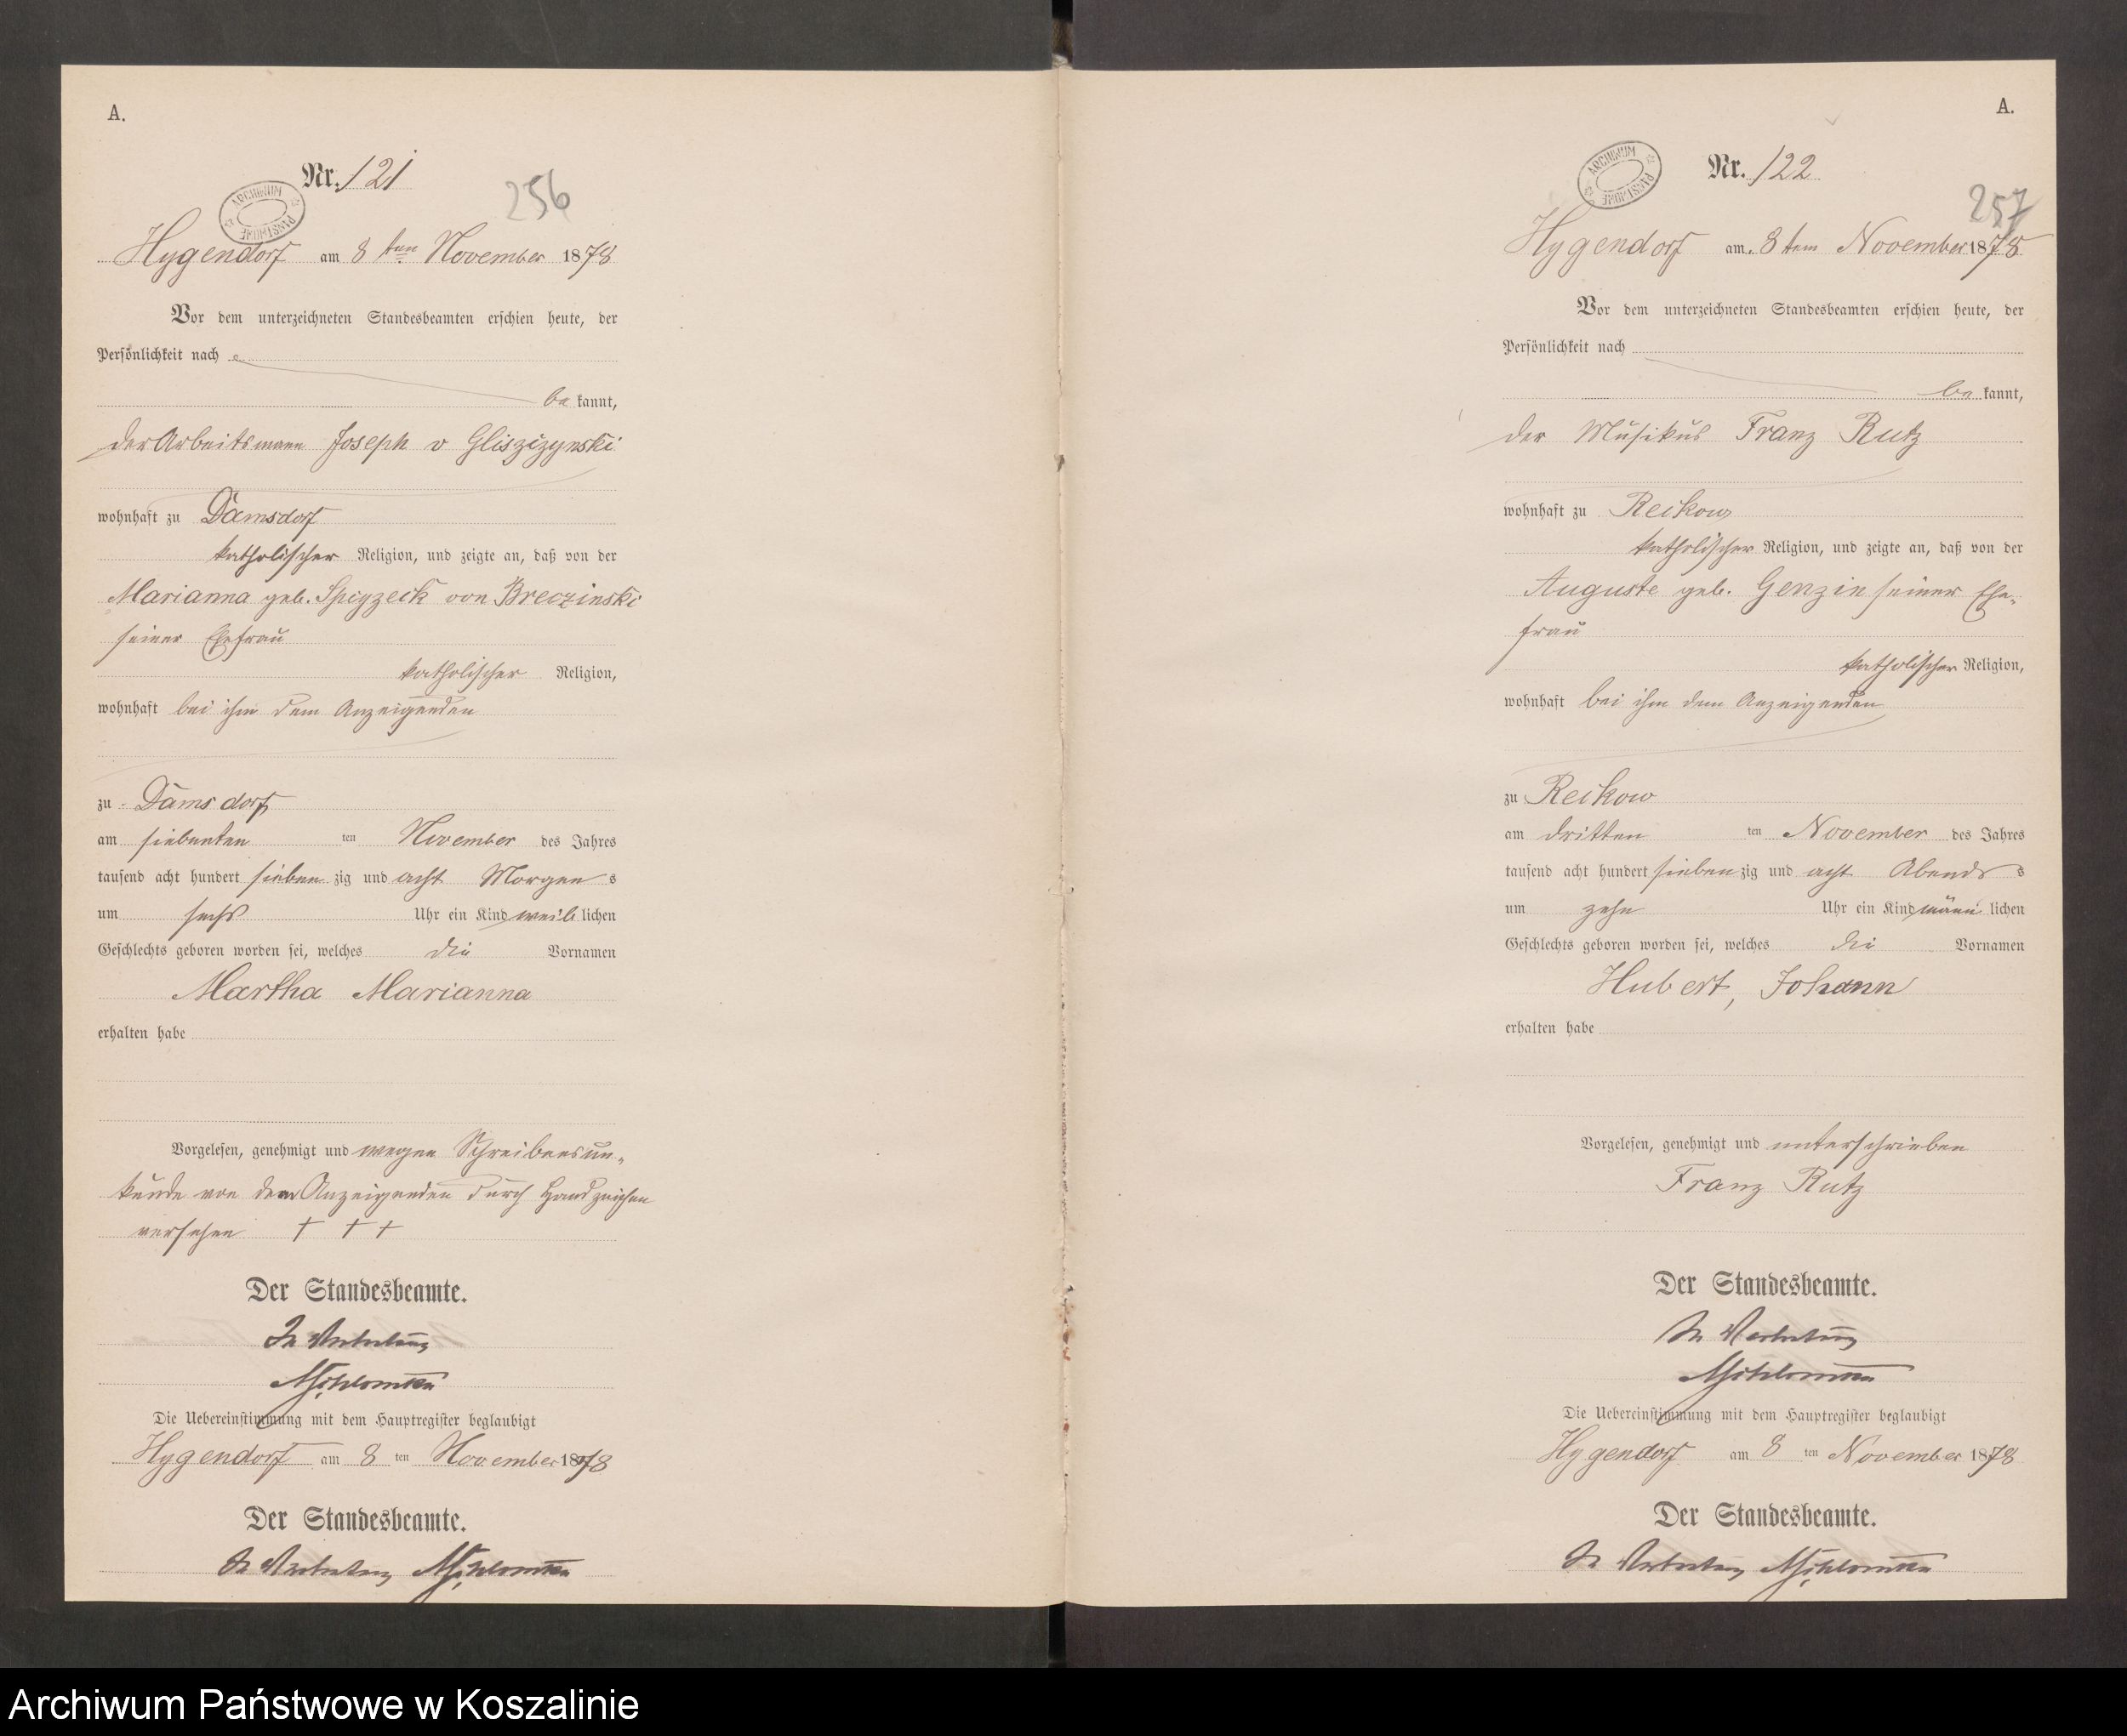 A.
Nr. 121
256
ARCHIWUM PAŃSTWOWE
Hygendorf am 8 ten November 1878
Vor dem unterzeichneten Standesbeamten erschien heute, der
Persönlichkeit nach
be kannt,
der Arbeitsmann Joseph v Gliszizynski
wohnhaft zu Damsdorf
katholischer Religion, und zeigte an, daß von der
Marianna geb. von Breczinski
seiner Ehefrau
katholischer Religion,
wohnhaft bei ihm dem Anzeigenden
zu Damsdorf
am siebenten ten November des Jahres
tausend acht hundert sieben zig und acht Morgen s
um sechs Uhr ein Kind weib lichen
Geschlechts geboren worden sei, welches die Vornamen
Martha Marianna
erhalten habe
Vorgelesen, genehmigt und wegen Schreibensun-
kunde von dem Anzeigenden durch Handzeichen
versehen † † †
Der Standesbeamte.
In Vertretung
Die Uebereinstimmung mit dem Hauptregister beglaubigt
Hygendorf am 8 ten November 1878
Der Standesbeamte.
In Vertretung
A.
Nr. 122
257
ARCHIWUM PAŃSTWOWE
Hygendorf am 8 tem November 1878
Vor dem unterzeichneten Standesbeamten erschien heute, der
Persönlichkeit nach
be kannt,
der Musikus Franz Rutz
wohnhaft zu Reikow
katholischer Religion, und zeigte an, daß von der
Auguste geb. Genzin seiner Ehe-
frau
katholischer Religion,
wohnhaft bei ihm dem Anzeigenden
zu Reikow
am dritten ten November des Jahres
tausend acht hundert sieben zig und acht Abends s
um zehn Uhr ein Kind männ lichen
Geschlechts geboren worden sei, welches die Vornamen
Hubert, Johann
erhalten habe
Vorgelesen, genehmigt und unterschrieben
Franz Rutz
Der Standesbeamte.
In Vertretung
Die Uebereinstimmung mit dem Hauptregister beglaubigt
Hygendorf am 8 ten November 1878
Der Standesbeamte.
In Vertretung
Archiwum Państwowe w Koszalinie